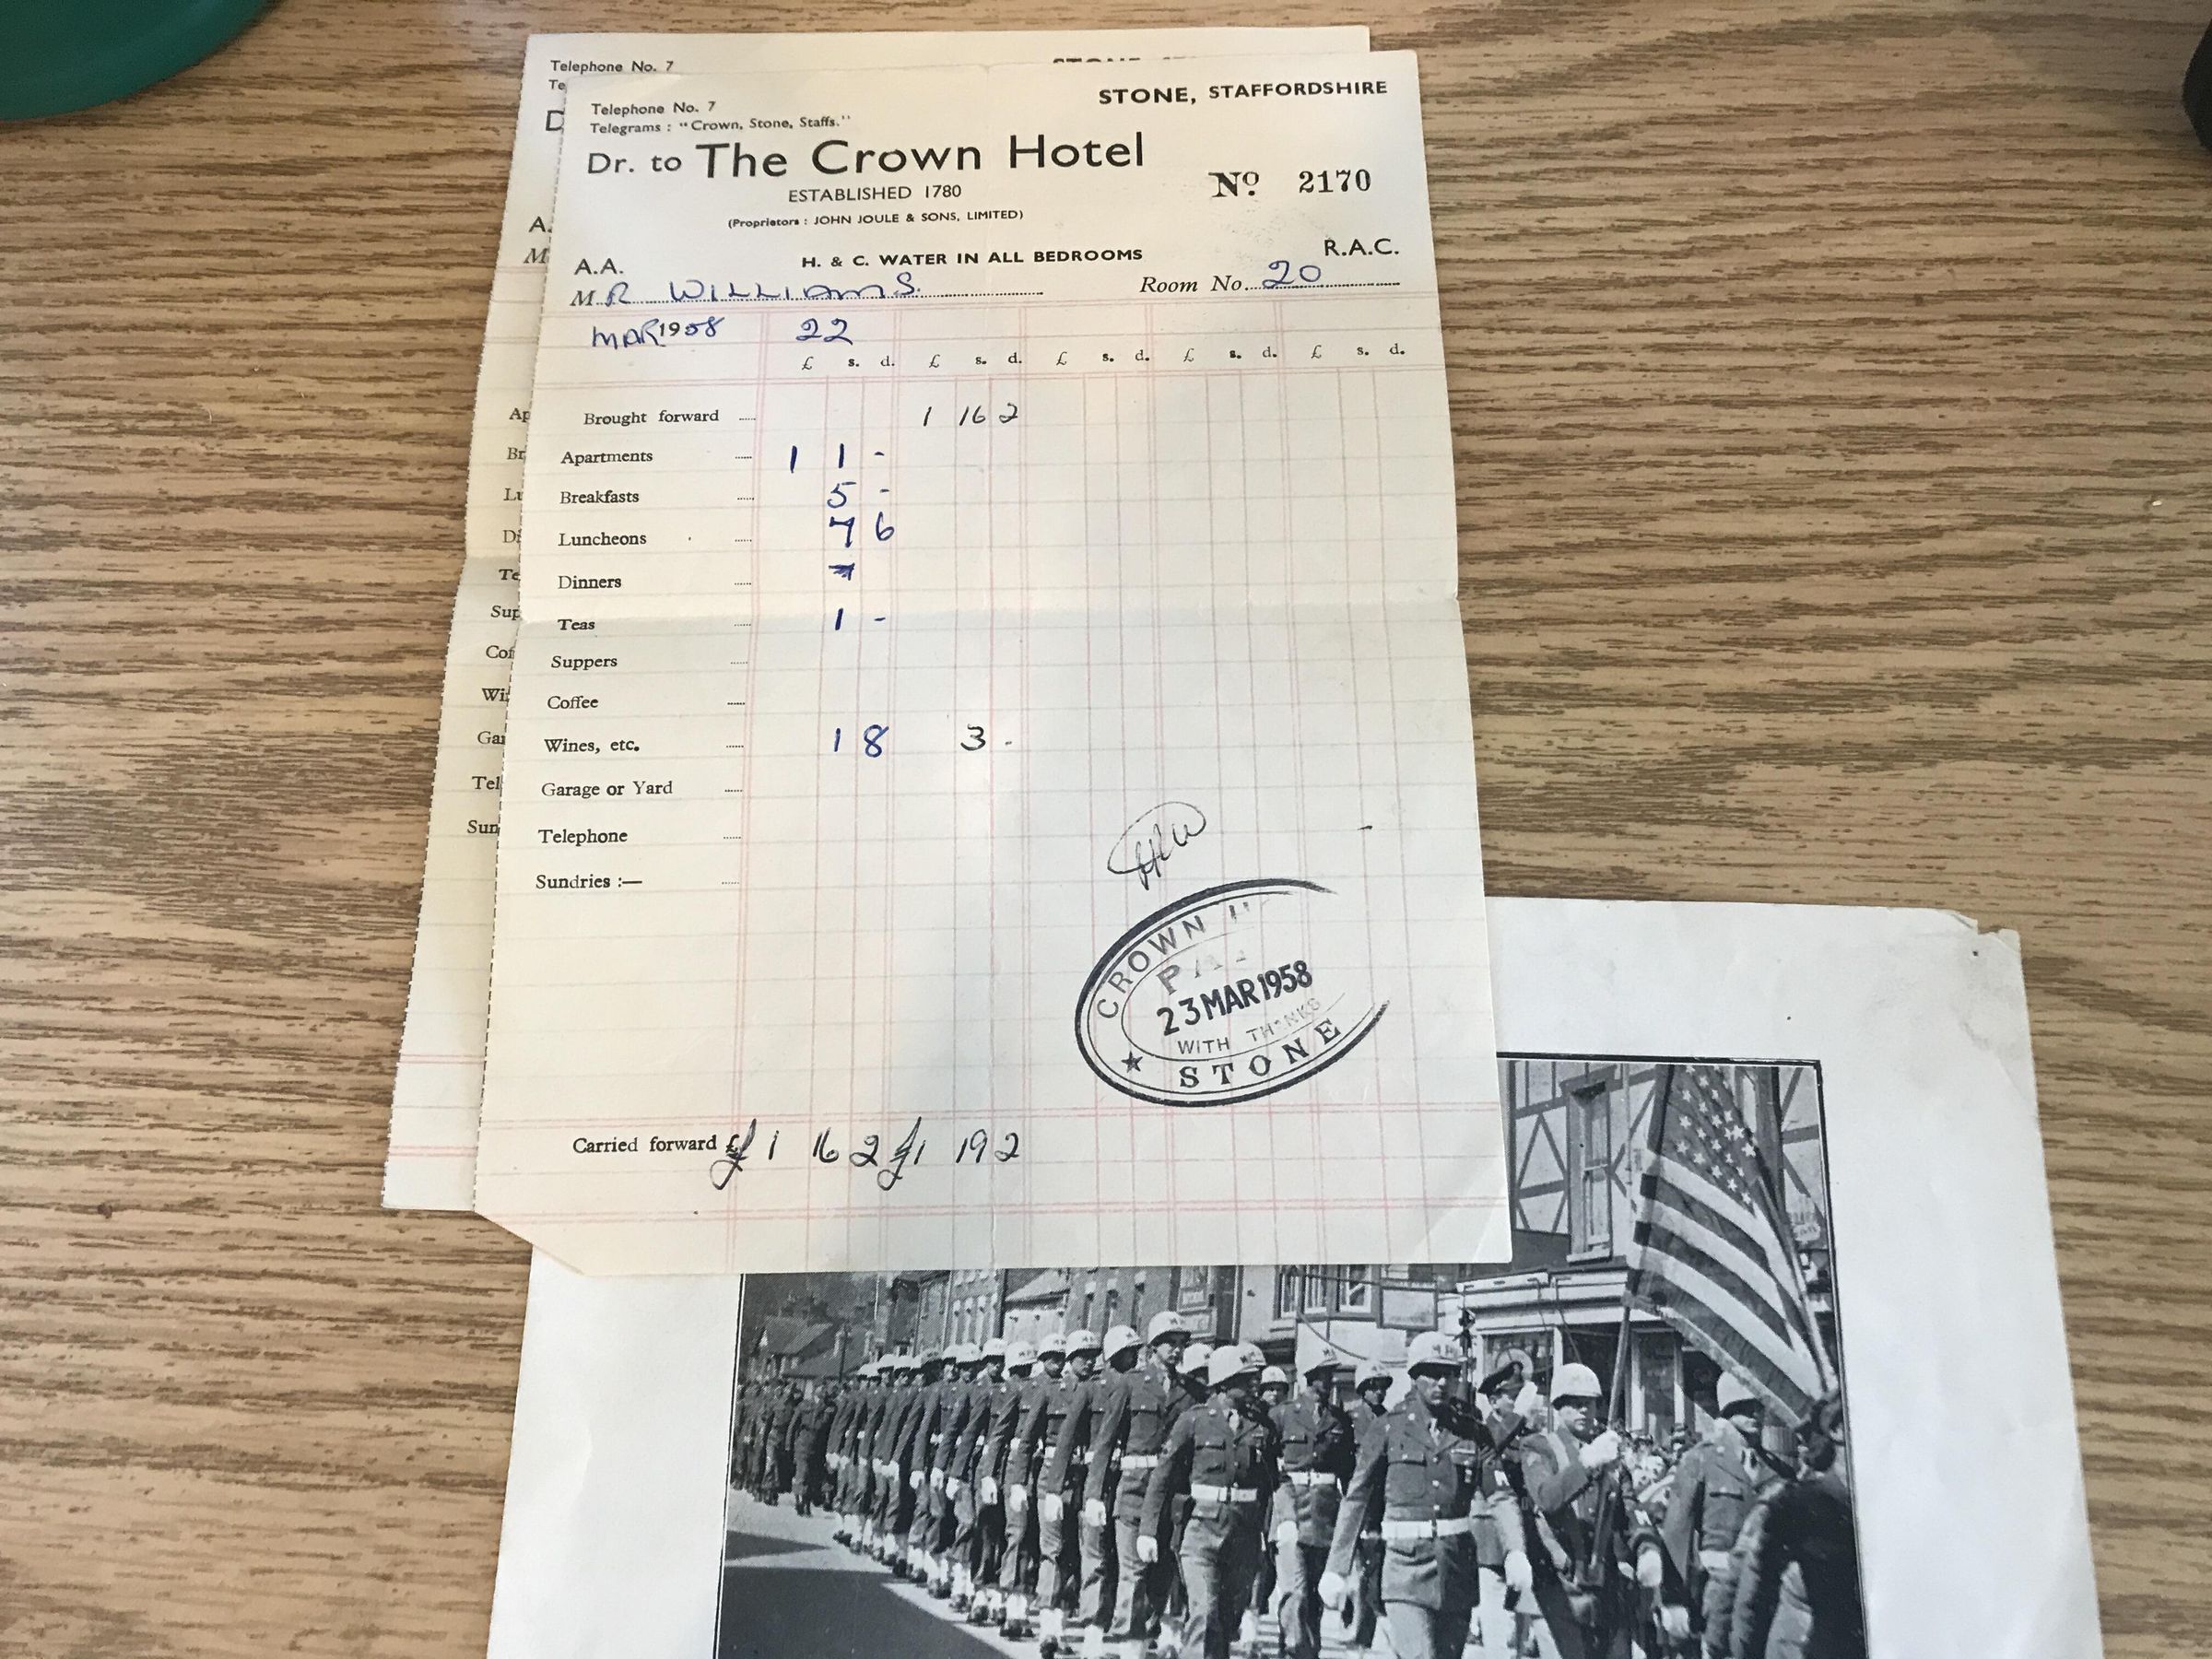 Telephone No. 7
Te
D
A.
M
Ap
Br
Lu
Di
Te
Sup
Cof
Wi
Gar
Tel
Sun
STONE, STAFFORDSHIRE
Telephone No. 7
Telegrams : "Crown, Stone, Staffs."
Dr. to The Crown Hotel
ESTABLISHED 1780
Nº 2170
(Proprietors : JOHN JOULE & SONS, LIMITED)
A.A. H. & C. WATER IN ALL BEDROOMS R.A.C.
MR WILLIAMS. Room No. 20
MAR 1958 22
£ s. d. £ s. d. £ s. d. £ s. d. £ s. d.
Brought forward 1 16 2
Apartments 1 1 -
Breakfasts 5 -
Luncheons 7 6
Dinners
Teas 1 -
Suppers
Coffee
Wines, etc. 1 8 3 -
Garage or Yard
Telephone
Sundries :—
CROWN
23 MAR 1958
WITH THANKS
★ STONE
Carried forward £ £1 16 2 £1 19 2